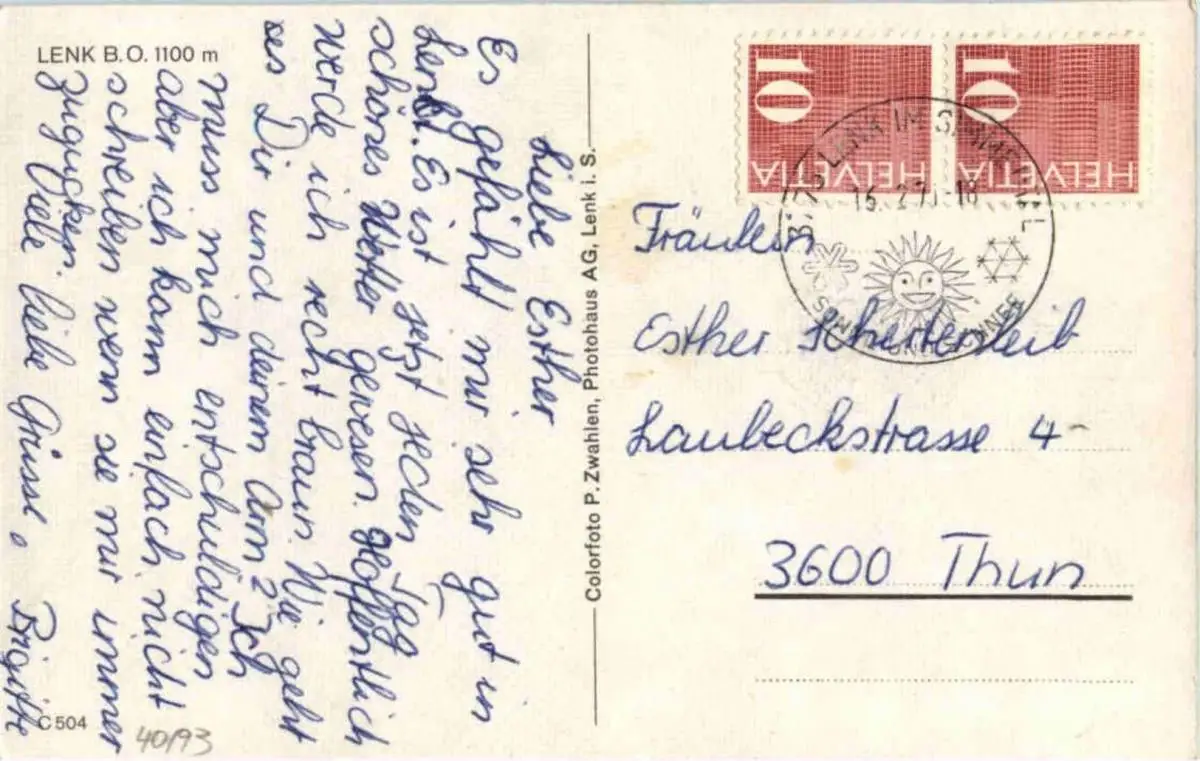 LENK B.O. 1100 m
Liebe Esther
Es gefählt mir sehr gut in
Lenk. Es ist jetzt jeden Tag
schönes Wetter gewesen. Hoffentlich
werde ich recht braun. Wie geht
es Dir und deinem Arm? Ich
muss mich entschuldigen
aber ich kann einfach nicht
schreiben wenn sie mir immer
zugucken. Viele liebe Grüsse.
Brigitte
C 504
40/93
Colorfoto P. Zwahlen, Photohaus AG, Lenk i. S.
10 HELVETIA
10 HELVETIA
LENK IM SIMMENTAL
15. 2. 71 - 18
Fräulein
Esther Schertenleib
Laubeckstrasse 4
3600 Thun